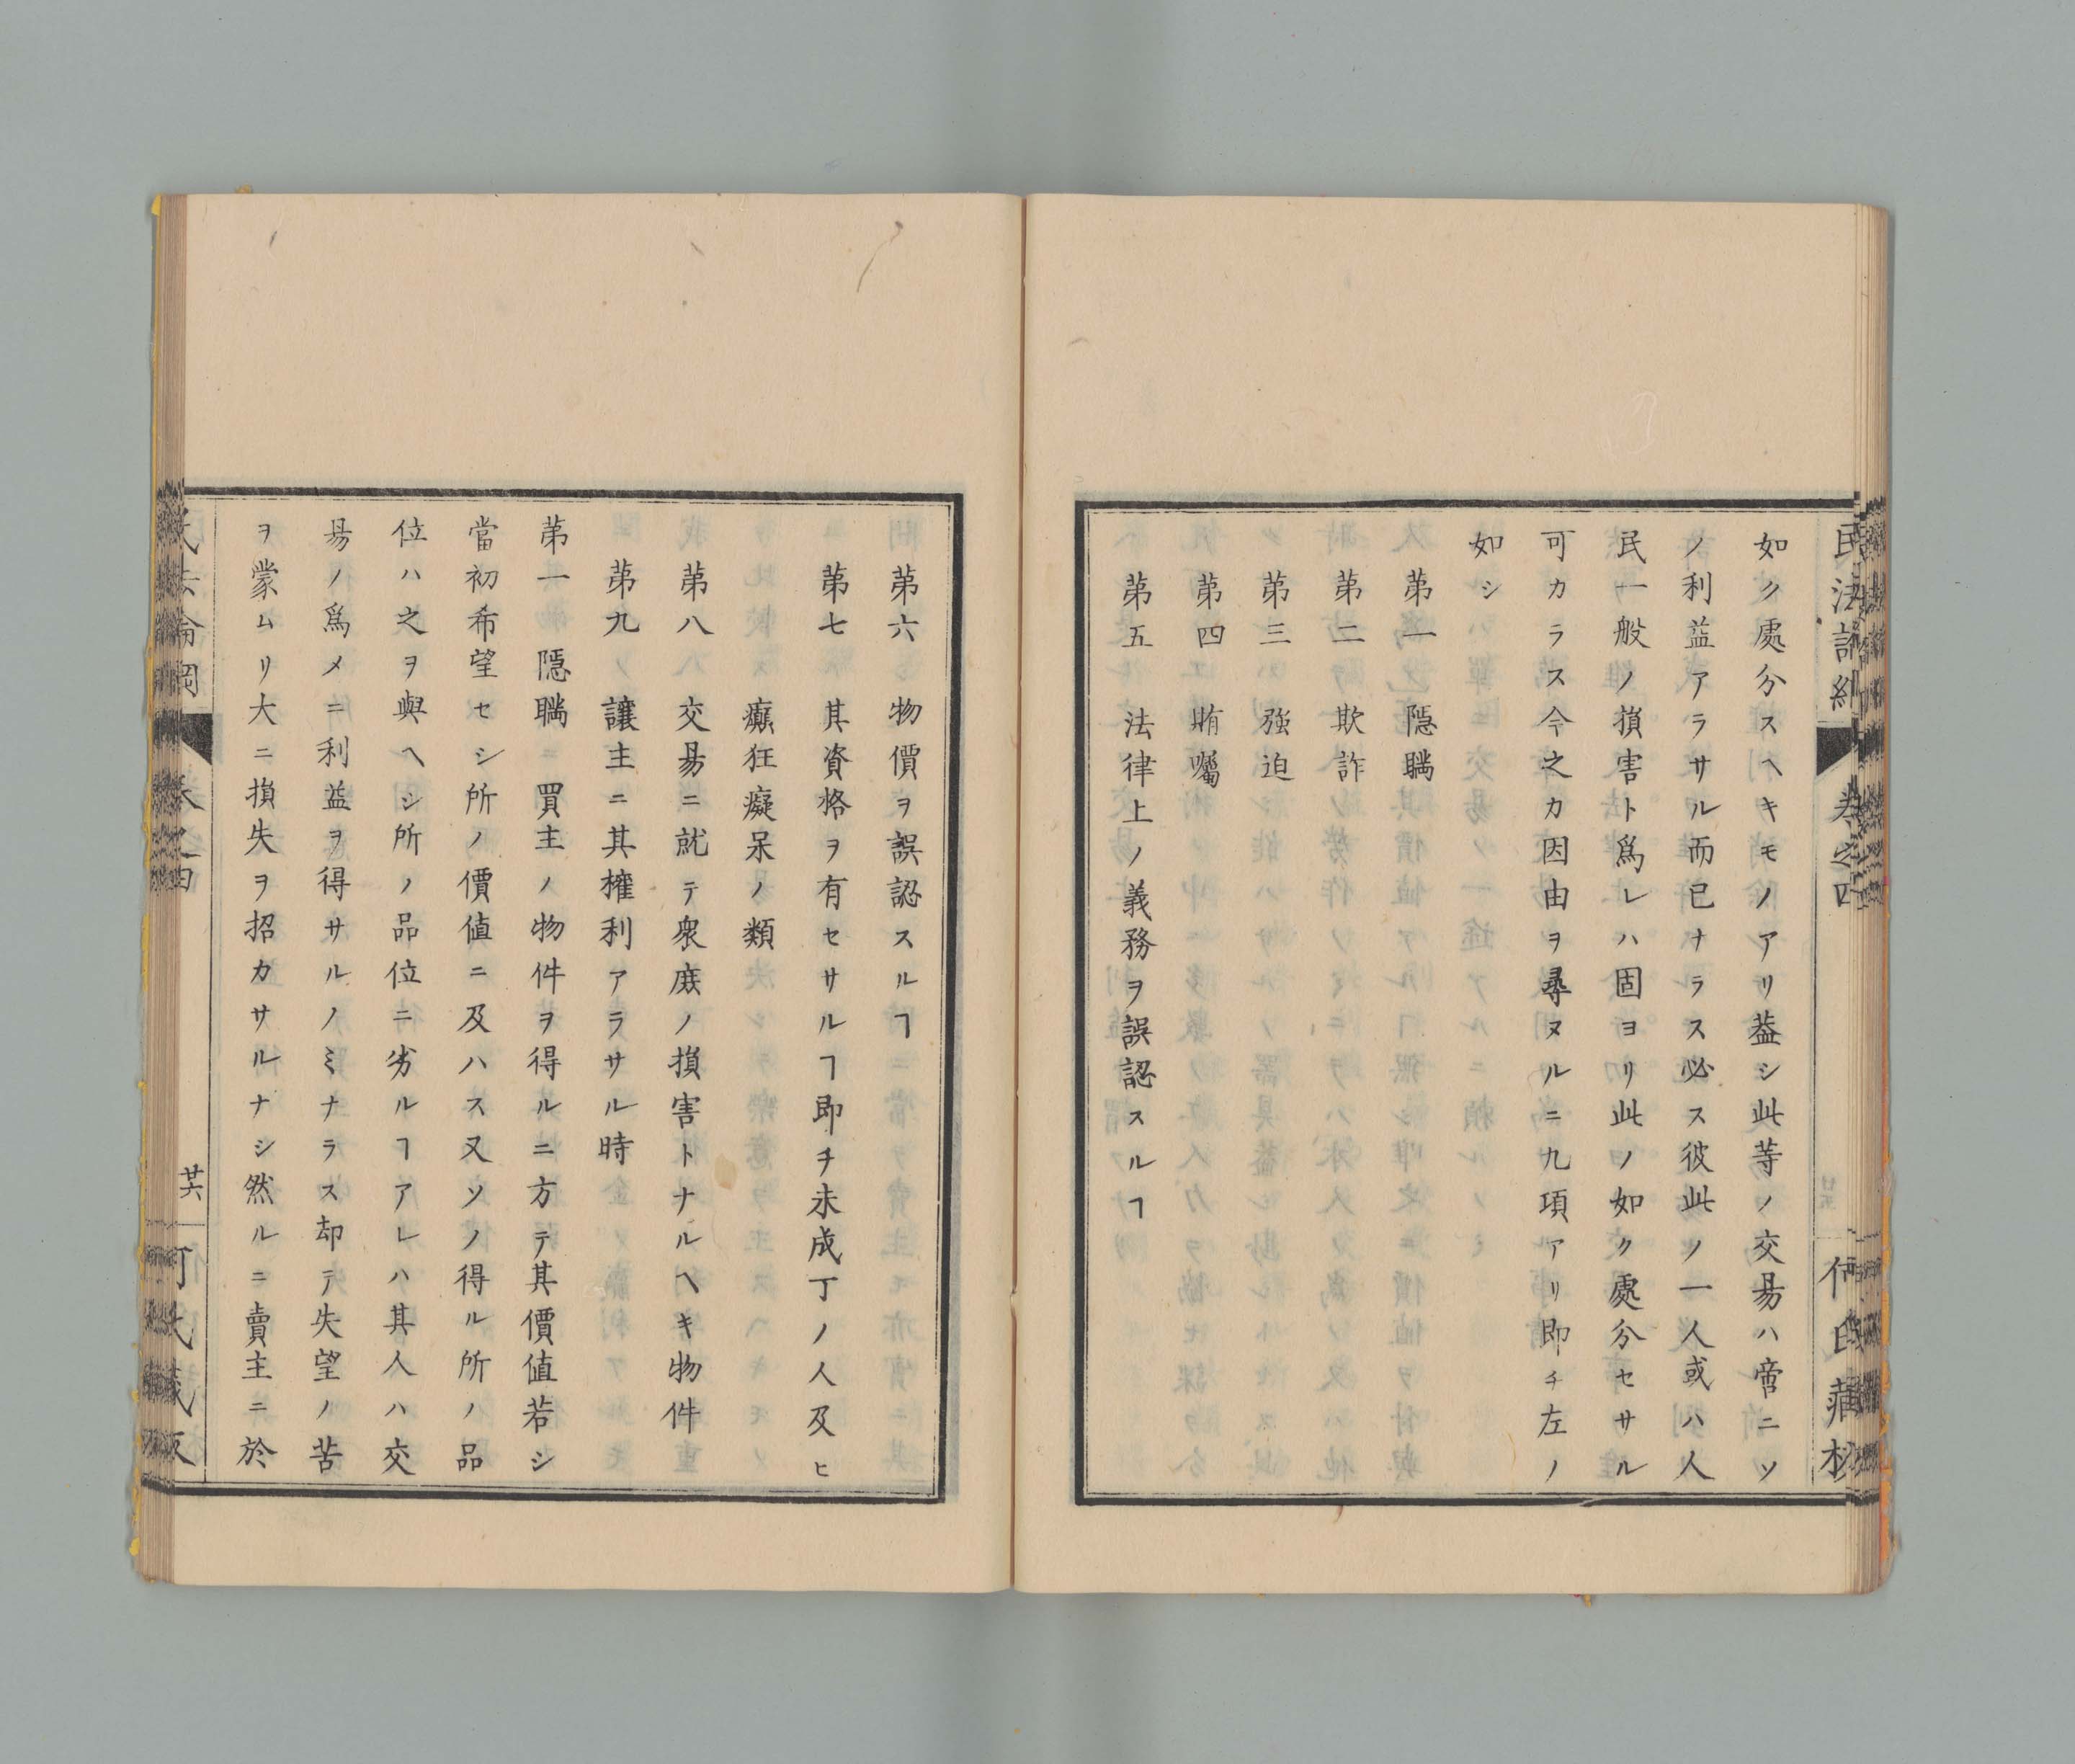 如ク處分スヘキモノアリ葢シ此等ノ交易ハ啻ニソ
ノ利益アラサル而已ナラス必ス彼此ノ一人或ハ人
民一般ノ損害ト爲レハ固ヨリ此ノ如ク處分セサル
可カラス今之カ因由ヲ尋ヌルニ九項アリ即チ左ノ
如シ
第一 隱瞞
第二 欺詐
第三 强迫
第四 賄囑
第五 法律上ノ義務ヲ誤認スルヿ
第六 物價ヲ誤認スルヿ
第七 其資格ヲ有セサルヿ即チ未成丁ノ人及ヒ
癲狂癡呆ノ類
第八 交易ニ就テ衆庶ノ損害トナルヘキ物件
第九 讓主ニ其權利アラサル時
第一隱瞞ニ買主ノ物件ヲ得ルニ方テ其價値若シ
當初希望セシ所ノ價値ニ及ハス又ソノ得ル所ノ品
位ハ之ヲ與ヘシ所ノ品位ニ劣ルヿアレハ其人ハ交
易ノ爲メニ利益ヲ得サルノミナラス却テ失望ノ苦
ヲ蒙ムリ大ニ損失ヲ招カサルナシ然ルニ賣主ニ於
民法論綱
卷之四
廿六
何氏藏版